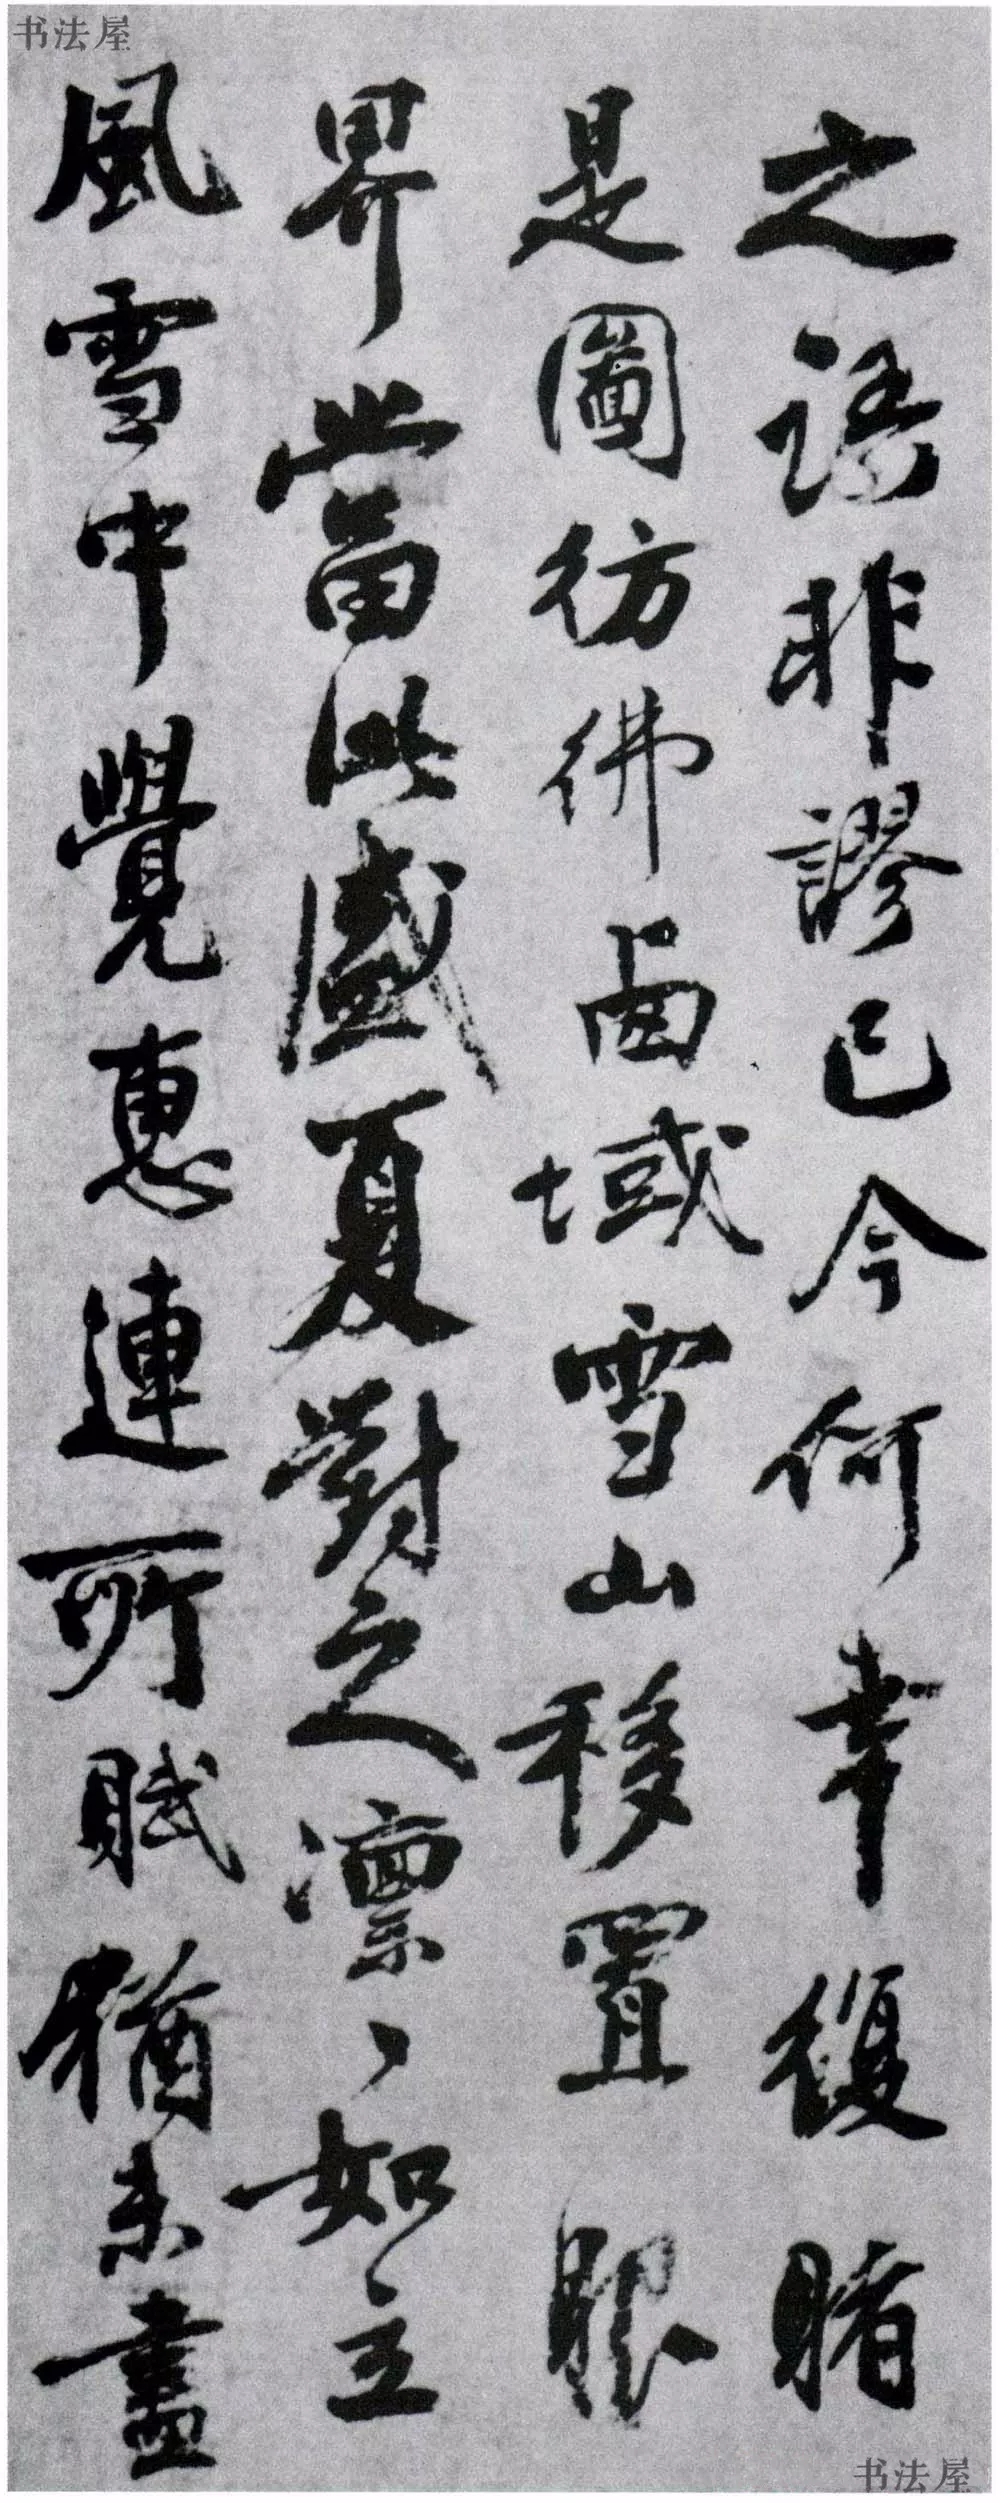 书法屋
之語非謬已今何幸復睹
是圖彷彿西域雪山移置眼
界當此盛夏對之凛〻如立
風雪中覺惠連所賦猶未盡
书法屋